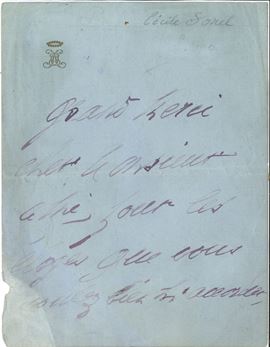 Cécile Sorel
Grand merci
cher Monsieur
pour les
loges que vous
voulez bien m'accorder